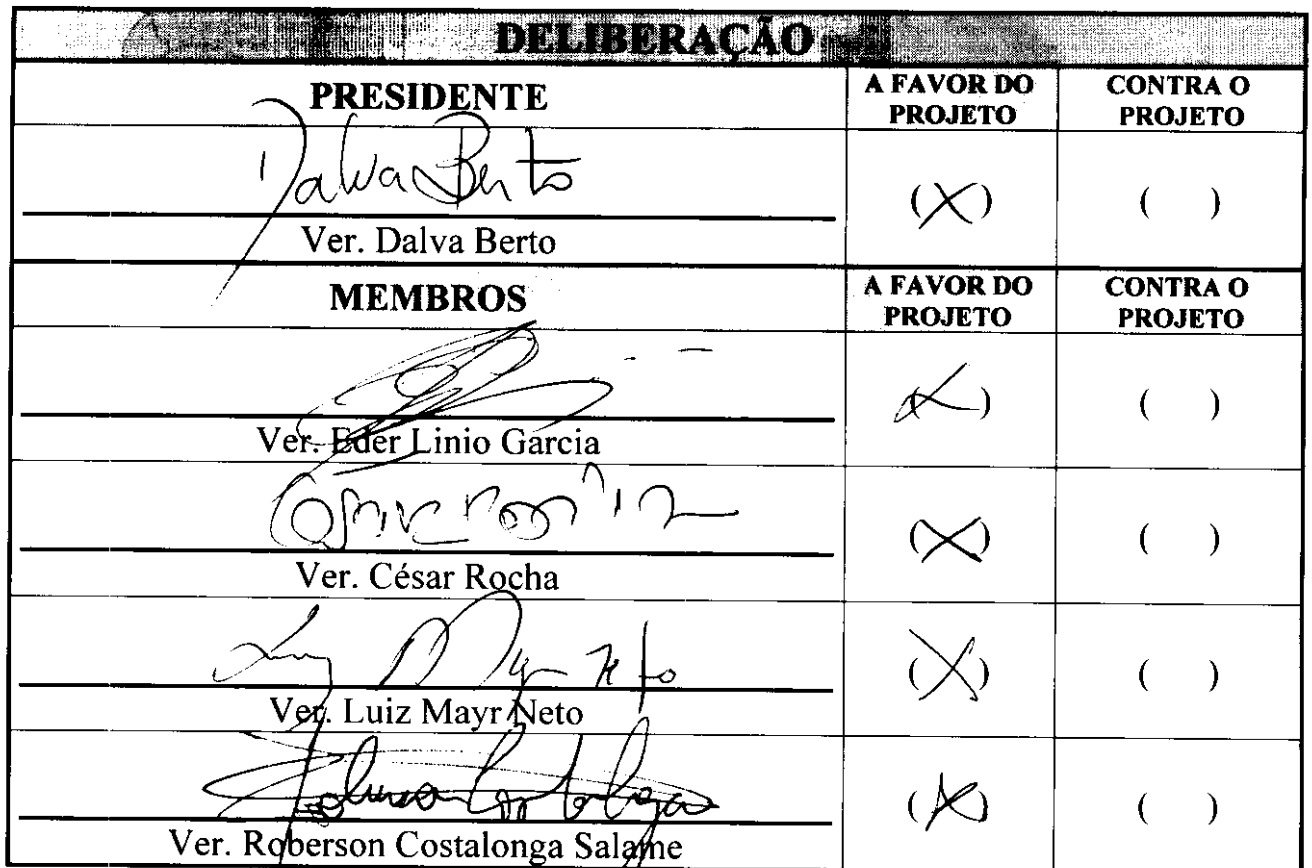 DELIBERAÇÃO
PRESIDENTE
A FAVOR DO PROJETO
CONTRA O PROJETO
Dalva Berto
(X)
( )
Ver. Dalva Berto
MEMBROS
A FAVOR DO PROJETO
CONTRA O PROJETO
(X)
( )
Ver. Eder Linio Garcia
(X)
( )
Ver. César Rocha
Luiz Mayr Neto
(X)
( )
Ver. Luiz Mayr Neto
(X)
( )
Ver. Roberson Costalonga Salame